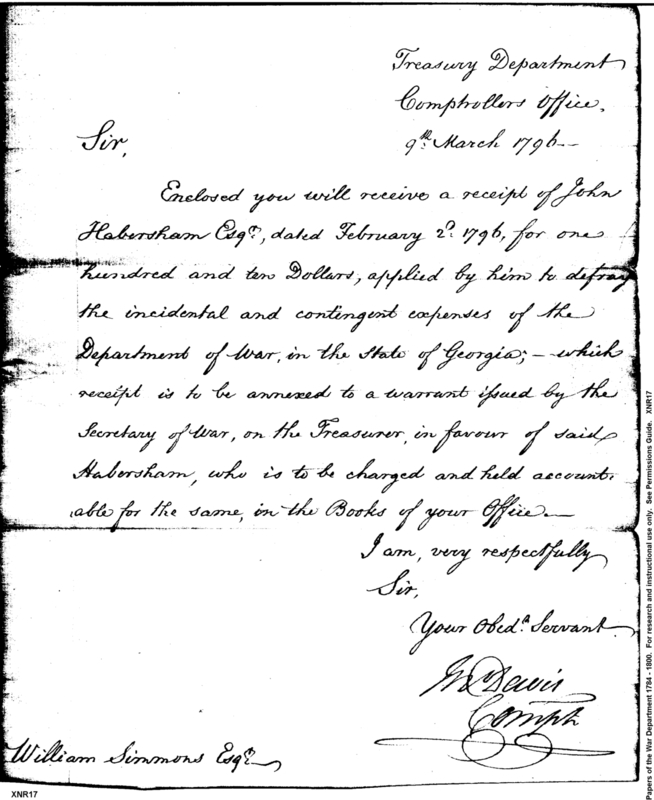 Treasury Department
Comptrollers Office,
9th. March 1796—
Sir,
Enclosed you will receive a receipt of John
Habersham Esqr., dated February 2d. 1796, for one
hundred and ten Dollars, applied by him to defray
the incidental and contingent expenses of the
Department of War, in the State of Georgia; — which
receipt is to be annexed to a warrant issued by the
Secretary of War, on the Treasurer, in favour of said
Habersham, who is to be charged and held account-
able for the same, in the Books of your Office.—
I am, very respectfully
Sir,
Your Obedt. Servant
Jno Davis
Compt
William Simmons Esqr.
XNR17
Papers of the War Department 1784 - 1800. For research and instructional use only. See Permissions Guide. XNR17